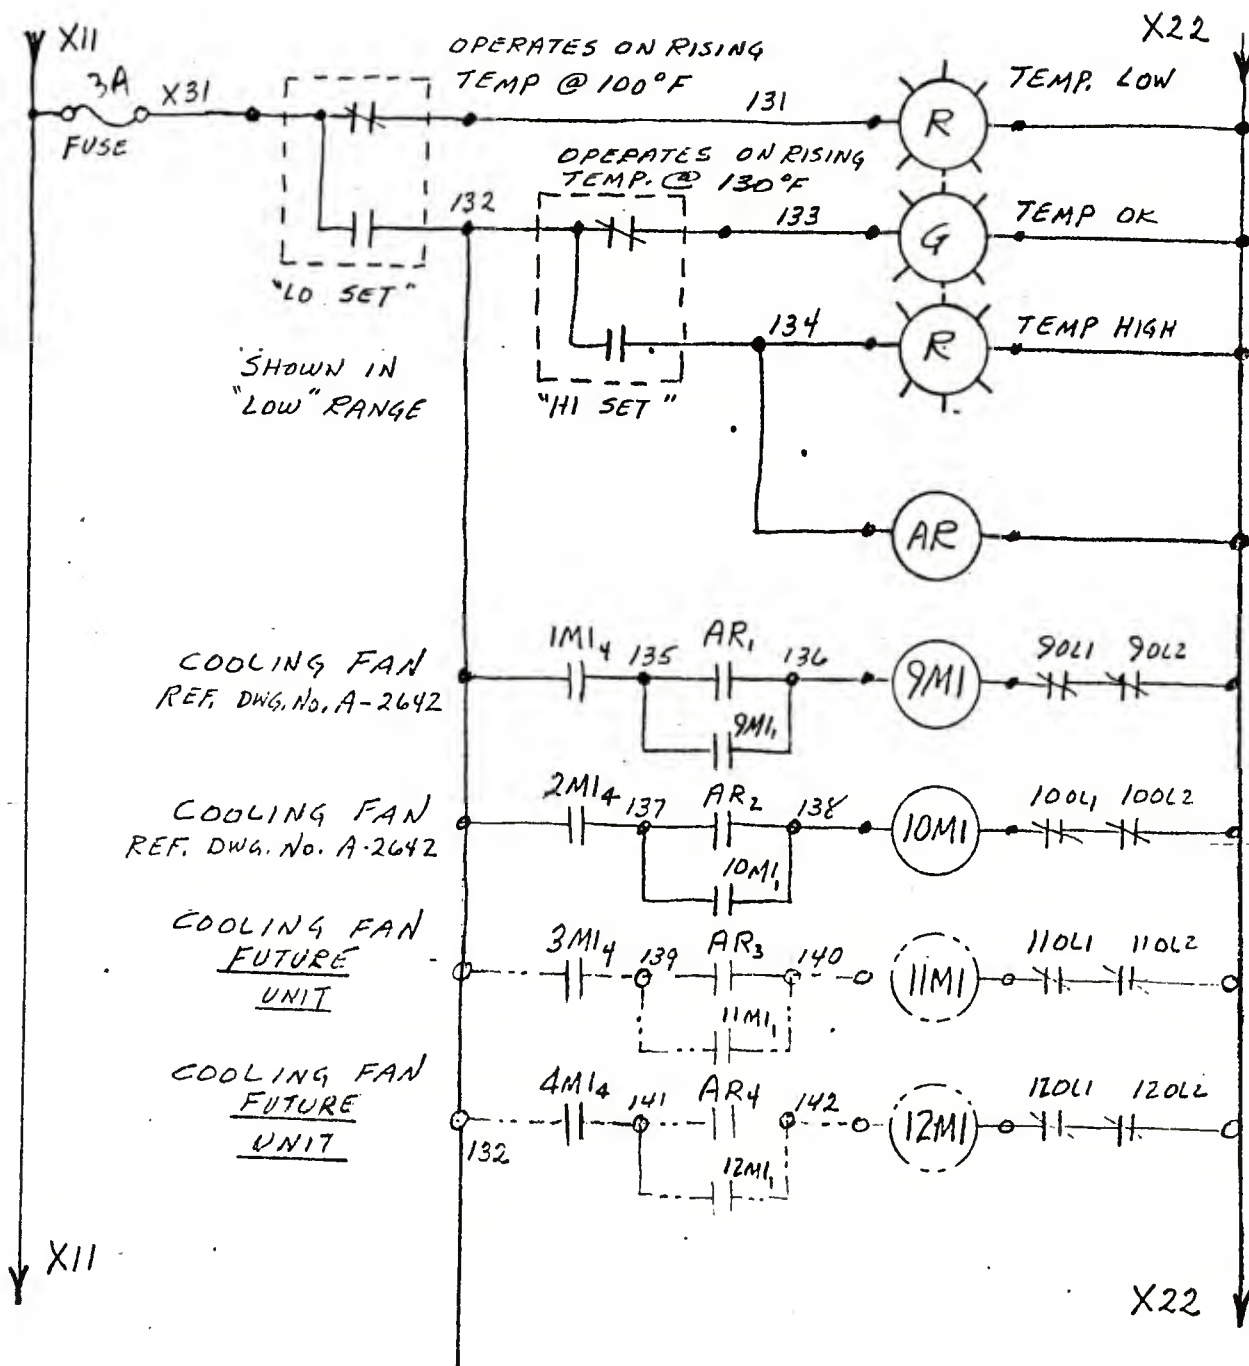 X11
X22
3A
X31
FUSE
OPERATES ON RISING
TEMP @ 100°F
131
R
TEMP. LOW
OPERATES ON RISING
TEMP. @ 130°F
132
133
G
TEMP OK
"LO SET"
134
R
TEMP HIGH
SHOWN IN
"LOW" RANGE
"HI SET"
AR
COOLING FAN
REF. DWG. No. A-2642
1M1₄
135
AR₁
136
9M1₁
9M1
9OL1
9OL2
COOLING FAN
REF. DWG. No. A-2642
2M1₄
137
AR₂
138
10M1₁
10M1
10OL1
10OL2
COOLING FAN
FUTURE
UNIT
3M1₄
139
AR₃
140
11M1₁
11M1
11OL1
11OL2
COOLING FAN
FUTURE
UNIT
132
4M1₄
141
AR₄
142
12M1₁
12M1
12OL1
12OL2
X11
X22